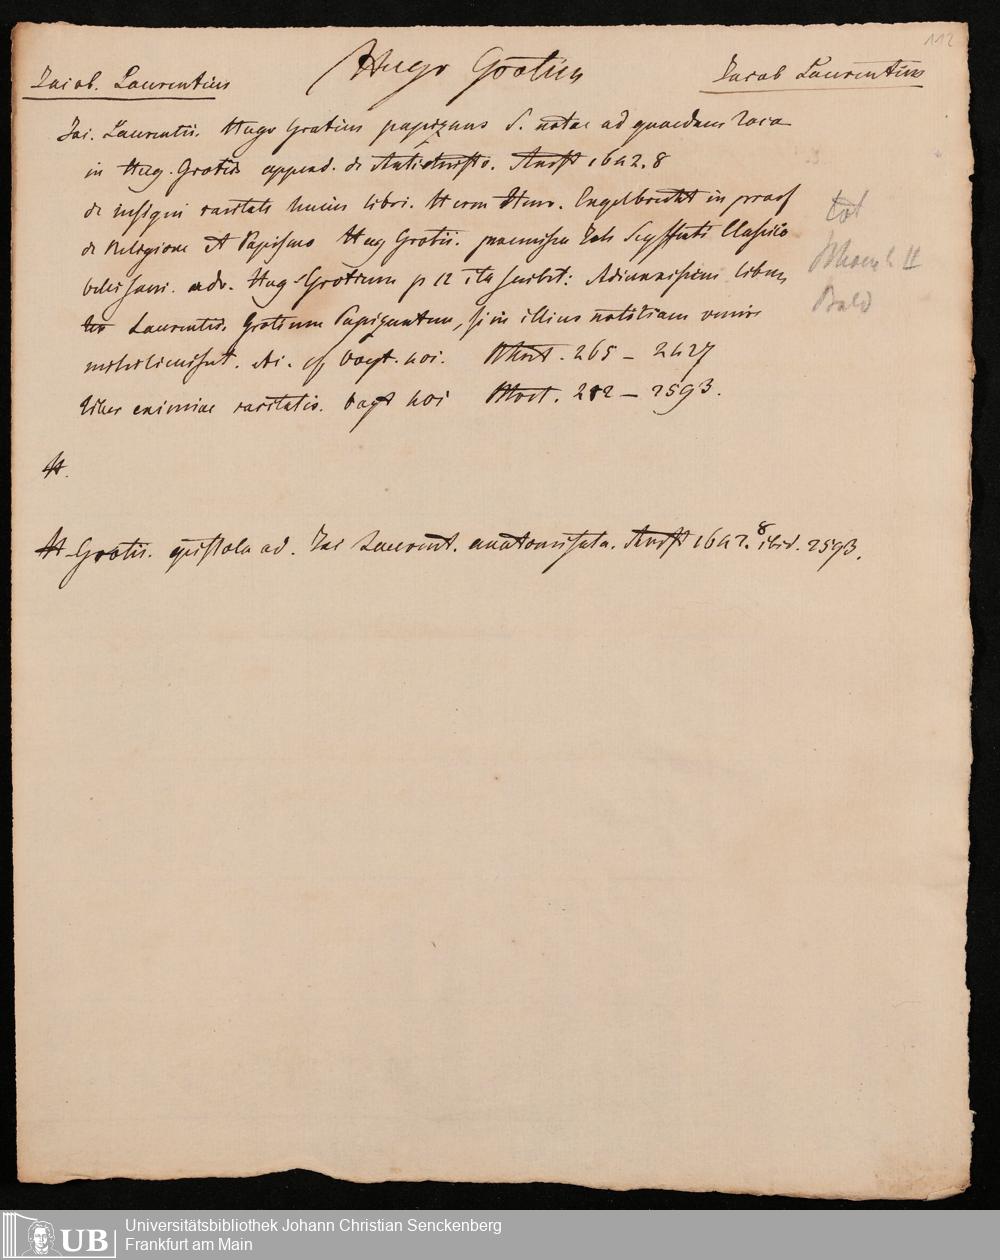 112
Jacob. Laurentius Hugo Grotius Jacob Laurentius
Jac. Laurentii. Hugo Grotius papizans S. notae ad quaedam loca
in Hug. Grotii append. de Antichristo. Amst 1642. 8
de insigni raritate huius libri. Herm Henr. Engelbrecht in praef
de Religione et Papismo Hug Grotii. praemissa Joh
adv. Hug Grotium p 12 ita scribit: librum
Laurentii Grotium Papizantem, in illius notitiam venire
mihi licuisset. Vogt. 401. 265 - 2427
Liber eximiae raritatis. Vogt 401 212 - 2593.
tot
II
Bald
H.
H Grotii. epistola ad. Jac Laurent. anatomisata. Amst 1642. 8 ibid. 2593.
UB Universitätsbibliothek Johann Christian Senckenberg
Frankfurt am Main